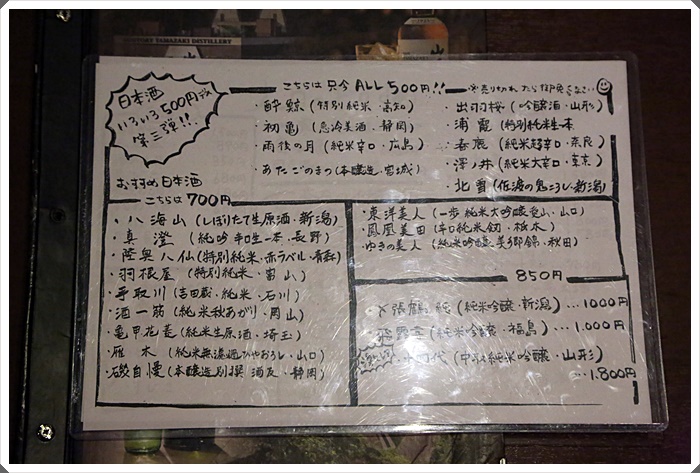 SUNTORY YAMAZAKI DISTILLERY
日本酒
いろいろ500円で
第三弾!!
こちらは 只今 ALL 500円!!
※売り切れたら御免なさい
・酔鯨(特別純米・高知)
・初亀(急冷美酒・静岡)
・雨後の月(純米辛口・広島)
・あたごのまつ(本醸造・宮城)
・出羽桜(吟醸酒・山形)
・浦霞(特別純米生一本
・春鹿(純米超辛口・奈良)
・澤ノ井(純米大辛口・東京)
・北雪(佐渡の鬼ころし・新潟)
おすすめ日本酒
こちらは 700円
・八海山(しぼりたて生原酒・新潟)
・真澄(純吟辛口生一本・長野)
・陸奥八仙(特別純米・赤ラベル・青森)
・羽根屋(特別純米・富山)
・手取川(吉田蔵・純米・石川)
・酒一筋(純米秋あがり・岡山)
・亀甲花菱(純米生原酒・埼玉)
・雁木(純米無濾過ひやおろし・山口)
・磯自慢(本醸造別撰 酒友・静岡)
・東洋美人(一歩 純米大吟醸愛山・山口)
・鳳凰美田(辛口純米 剱・栃木)
・ゆきの美人(純米吟醸・美郷錦・秋田)
850円
・〆張鶴 純(純米吟醸・新潟)…1000円
・飛露喜(純米吟醸・福島)…1.000円
十四代(中取純米吟醸・山形)
…1.800円